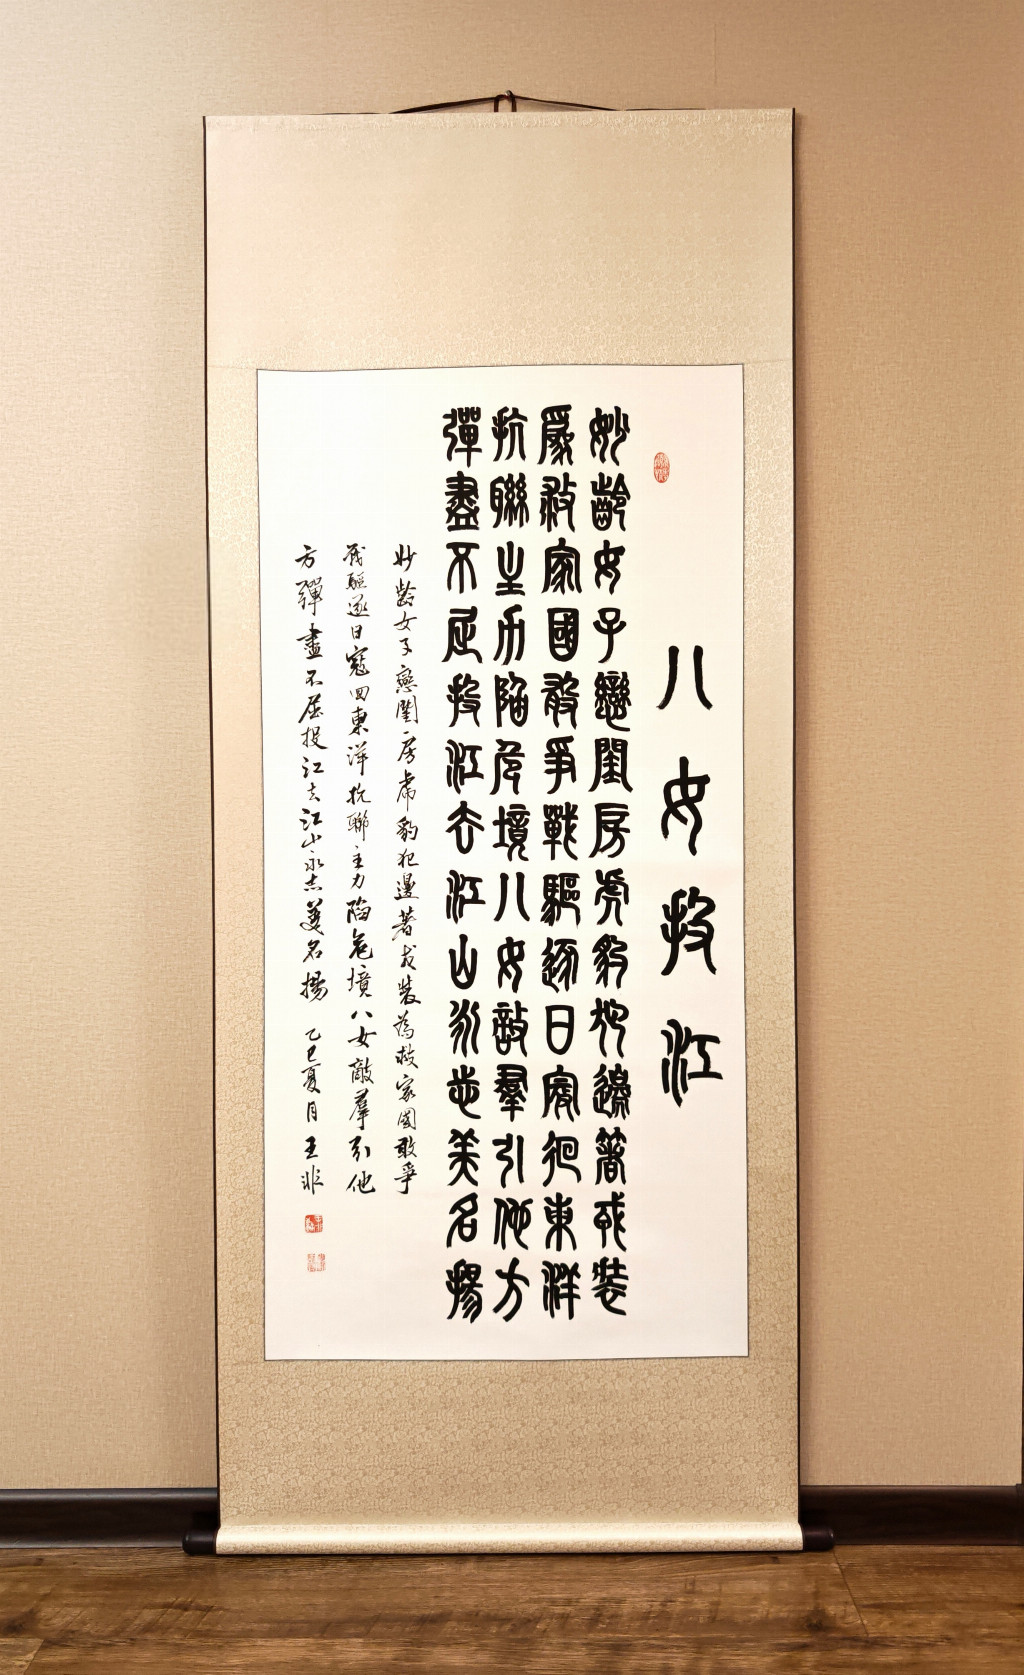 八女投江
妙齡女子戀閨房虎豹犯邊著戎裝
爲救家國敢爭戰驅逐日寇回東洋
抗聯主力陷危境八女敵羣引他方
彈盡不屈投江去江山永志美名揚
妙齡女子戀閨房虎豹犯邊著戎裝為救家國敢爭
戰驅逐日寇回東洋抗聯主力陷危境八女敵羣引他
方彈盡不屈投江去江山永志美名揚 乙巳夏月王非